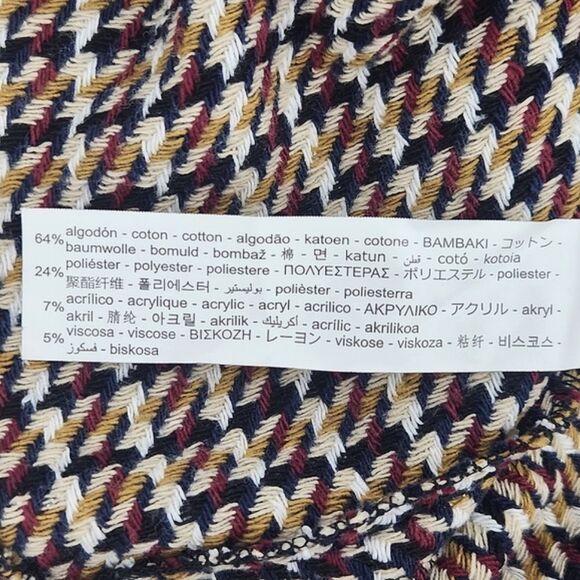 64% algodón - coton - cotton - algodão - katoen - cotone - BAMBAKI - コットン -
baumwolle - bomuld - bombaž - 棉 - 면 - katun - قطن - cotó - kotoia
24% poliéster - polyester - poliestere - ΠΟΛΥΕΣΤΕΡΑΣ - ポリエステル - poliester -
聚酯纤维 - 폴리에스터 - بوليستير - polièster - poliesterra
7% acrílico - acrylique - acrylic - acryl - acrilico - ΑΚΡΥΛΙΚΟ - アクリル - akryl -
akril - 腈纶 - 아크릴 - akrilik - أكريليك - acrílic - akrilikoa
5% viscosa - viscose - ΒΙΣΚΟΖΗ - レーヨン - viskose - viskoza - 粘纤 - 비스코스 -
فسكوز - biskosa